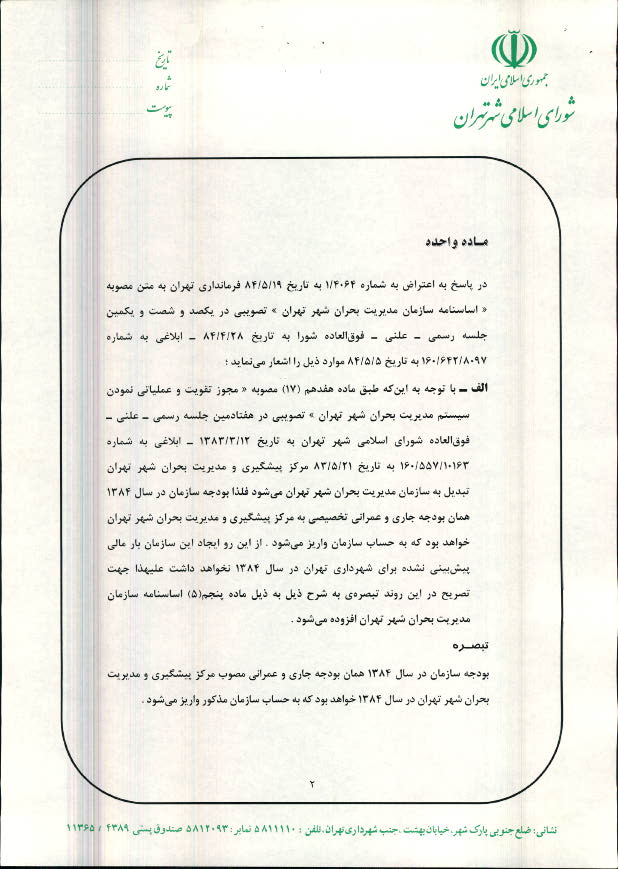 جمهوری اسلامی ایران
شورای اسلامی شهر تهران
تاریخ
شماره
پیوست
مـاده واحده
در پاسخ به اعتراض به شماره ۱/۴۰۶۴ به تاریخ ۸۴/۵/۱۹ فرمانداری تهران به متن مصوبه
« اساسنامه سازمان مدیریت بحران شهر تهران » تصویبی در یکصد و شصت و یکمین
جلسه رسمی ــ علنی ــ فوق‌العاده شورا به تاریخ ۸۴/۴/۲۸ ــ ابلاغی به شماره
۱۶۰/۶۴۲/۸۰۹۷ به تاریخ ۸۴/۵/۵ موارد ذیل را اشعار می‌نماید ؛
الف ــ با توجه به این‌که طبق ماده هفدهم (۱۷) مصوبه « مجوز تقویت و عملیاتی نمودن
سیستم مدیریت بحران شهر تهران » تصویبی در هفتادمین جلسه رسمی ــ علنی ــ
فوق‌العاده شورای اسلامی شهر تهران به تاریخ ۱۳۸۳/۳/۱۲ ــ ابلاغی به شماره
۱۶۰/۵۵۷/۱۰۱۶۳ به تاریخ ۸۳/۵/۲۱ مرکز پیشگیری و مدیریت بحران شهر تهران
تبدیل به سازمان مدیریت بحران شهر تهران می‌شود فلذا بودجه سازمان در سال ۱۳۸۴
همان بودجه جاری و عمرانی تخصیصی به مرکز پیشگیری و مدیریت بحران شهر تهران
خواهد بود که به حساب سازمان واریز می‌شود . از این رو ایجاد این سازمان بار مالی
پیش‌بینی نشده برای شهرداری تهران در سال ۱۳۸۴ نخواهد داشت علیهذا جهت
تصریح در این روند تبصره‌ی به شرح ذیل به ذیل ماده پنجم(۵) اساسنامه سازمان
مدیریت بحران شهر تهران افزوده می‌شود .
تبصـره
بودجه سازمان در سال ۱۳۸۴ همان بودجه جاری و عمرانی مصوب مرکز پیشگیری و مدیریت
بحران شهر تهران در سال ۱۳۸۴ خواهد بود که به حساب سازمان مذکور واریز می‌شود .
۲
نشانی: ضلع جنوبی پارک شهر، خیابان بهشت ، جنب شهرداری تهران، تلفن : ۵۸۱۱۱۱۰ نمابر: ۵۸۱۲۰۹۳ صندوق پستی ۴۳۸۹ / ۱۱۳۶۵